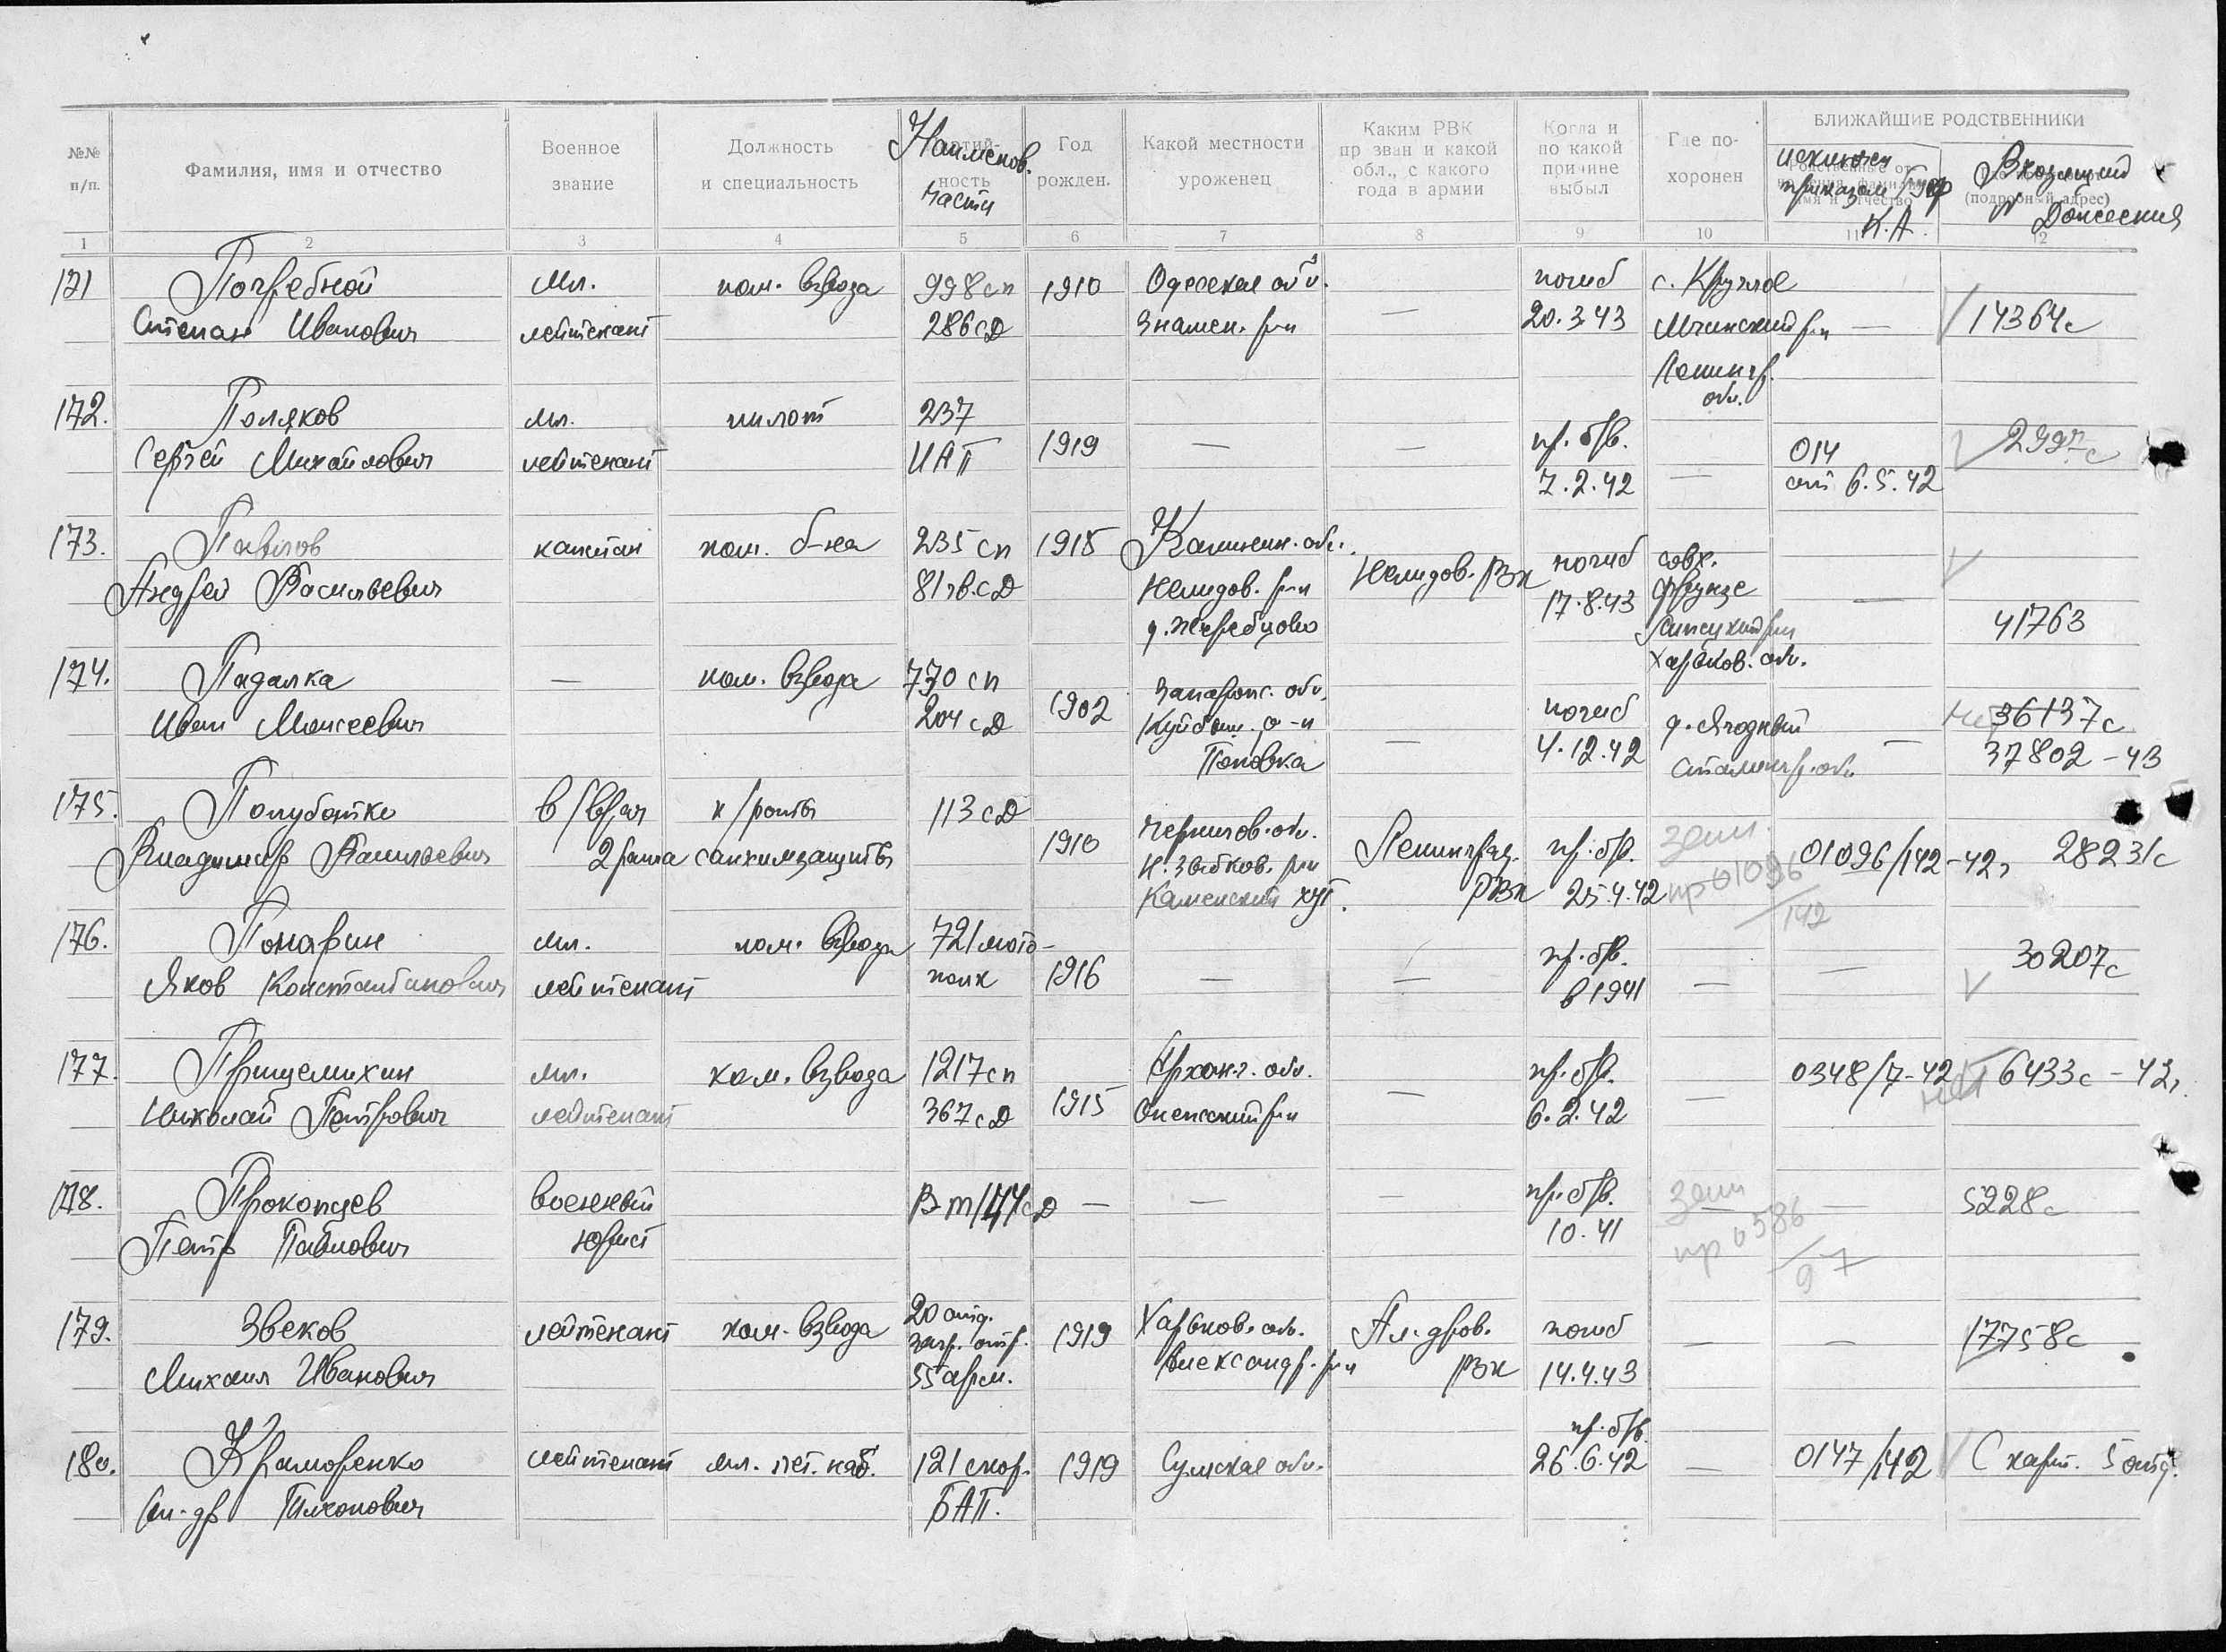 №№ п/п.
Фамилия, имя и отчество
Военное звание
Должность и специальность
Наименов. части
Год рожден.
Какой местности уроженец
Каким РВК призван и какой обл., с какого года в армии
Когда и по какой причине выбыл
Где похоронен
БЛИЖАЙШИЕ РОДСТВЕННИКИ
исключен приказом К.А.
Входящий № Донесения
1 2 3 4 5 6 7 8 9 10 11 12
171 Погребной мл. ком. взвода 998 сп 1910 Одесская обл. — погиб с. Круглое
Степан Иванович лейтенант 286 сД Знамен. р-н — 20.3.43 Мгинский р-н — 14364с
Ленингр. обл.
172. Поляков мл. пилот 237
Сергей Михайлович лейтенант ИАП 1919 — — пр. б/в. 7.2.42 — 014 от 6.5.42 2997с
173. Павлов капитан ком. б-на 235 сп 1915 Калинин. обл. погиб совх.
Андрей Васильевич 81 гв. сД Нелидов. р-н Нелидов. РВК 17.8.43 Фрунзе —
д. Жеребцово 41763
Харьков. обл.
174. Падалка — ком. взвода 770 сп Запарож. обл.
Иван Моисеевич 204 сД 1902 Куйбыш. р-н — погиб д. Ягодный — нет 36137с
Поповка 4.12.42 Сталингр. обл. 37802-43
175. Полуботко в/врач к/роты 113 сД Чернигов. обл.
Владимир Васильевич 2 ранга санхимзащиты 1910 Н. Зыбков. р-н Ленинград. пр. б/в. 01096/142-42г 28231с
Каменский хут. РВК 25.4.42 пр 01096/142
176. Понарин мл. ком. взвода 721 мото-
Яков Константинович лейтенант полк 1916 — — пр. б/в. в 1941 — — 30207с
177. Прищемихин мл. ком. взвода 1217 сп Арханг. обл. пр. б/в. 0348/7-42 нет 6433с-42г.
Николай Петрович лейтенант 367 сД 1915 Онежский р-н — 6.2.42 —
178. Прокопцев военный ВТ/147 сД — — — пр. б/в. — — 5228с
Петр Павлович юрист 10.41 пр 0586/97
179. Звеков лейтенант ком. взвода 20 отд. Харьков. обл. Ал-дров. погиб
Михаил Иванович загр. отр. 55 арм. 1919 Александр. р-н РВК 14.4.43 — — 17758с
180. Краморенко лейтенант мл. лет. наб. 121 скор. 1919 Сумская обл. пр. б/в. 26.6.42 — 0147/142 С карт. 5 отд.
Ал-др Тихонович БАП.